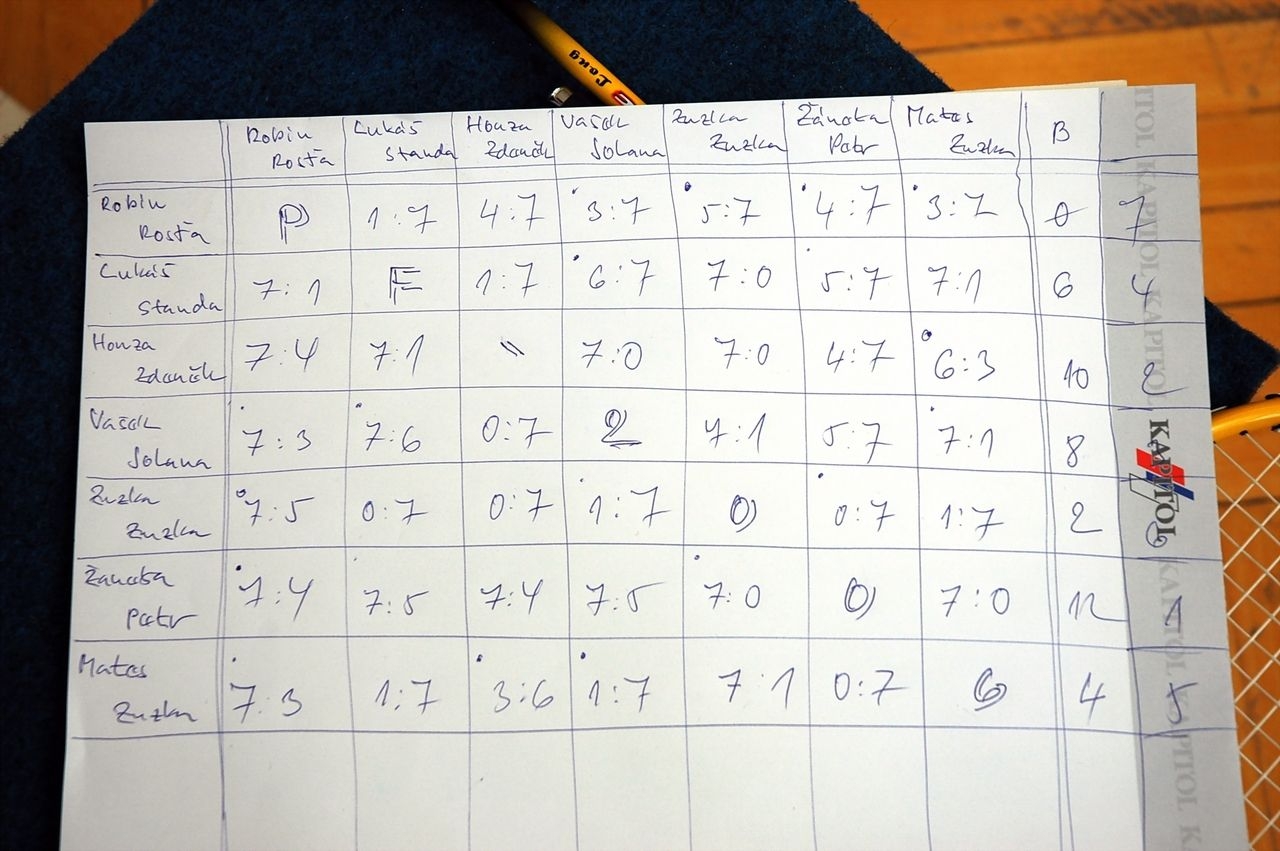 Long
Robin Lukáš Honza Vašek Zuzka Žaneta Matas B
Rosťa Standa Zdeněk Jolana Zuzka Petr Zuzka
Robin
Rosťa P 1:7 4:7 3:7 5:7 4:7 3:7 0 7
Lukáš
Standa 7:1 E 1:7 6:7 7:0 5:7 7:1 6 4
Honza
Zdeněk 7:4 7:1 7:0 7:0 4:7 6:3 10 2
Vašek
Jolana 7:3 7:6 0:7 2 7:1 5:7 7:1 8
Zuzka
Zuzka 7:5 0:7 0:7 1:7 0) 0:7 1:7 2
Žaneta
Petr 7:4 7:5 7:4 7:5 7:0 0) 7:0 12 1
Matas
Zuzka 7:3 1:7 3:6 1:7 7:1 0:7 6 4 5
KAPITOL
KAPITOL KAPITOL KAPITOL
KAPITOL KAPITOL